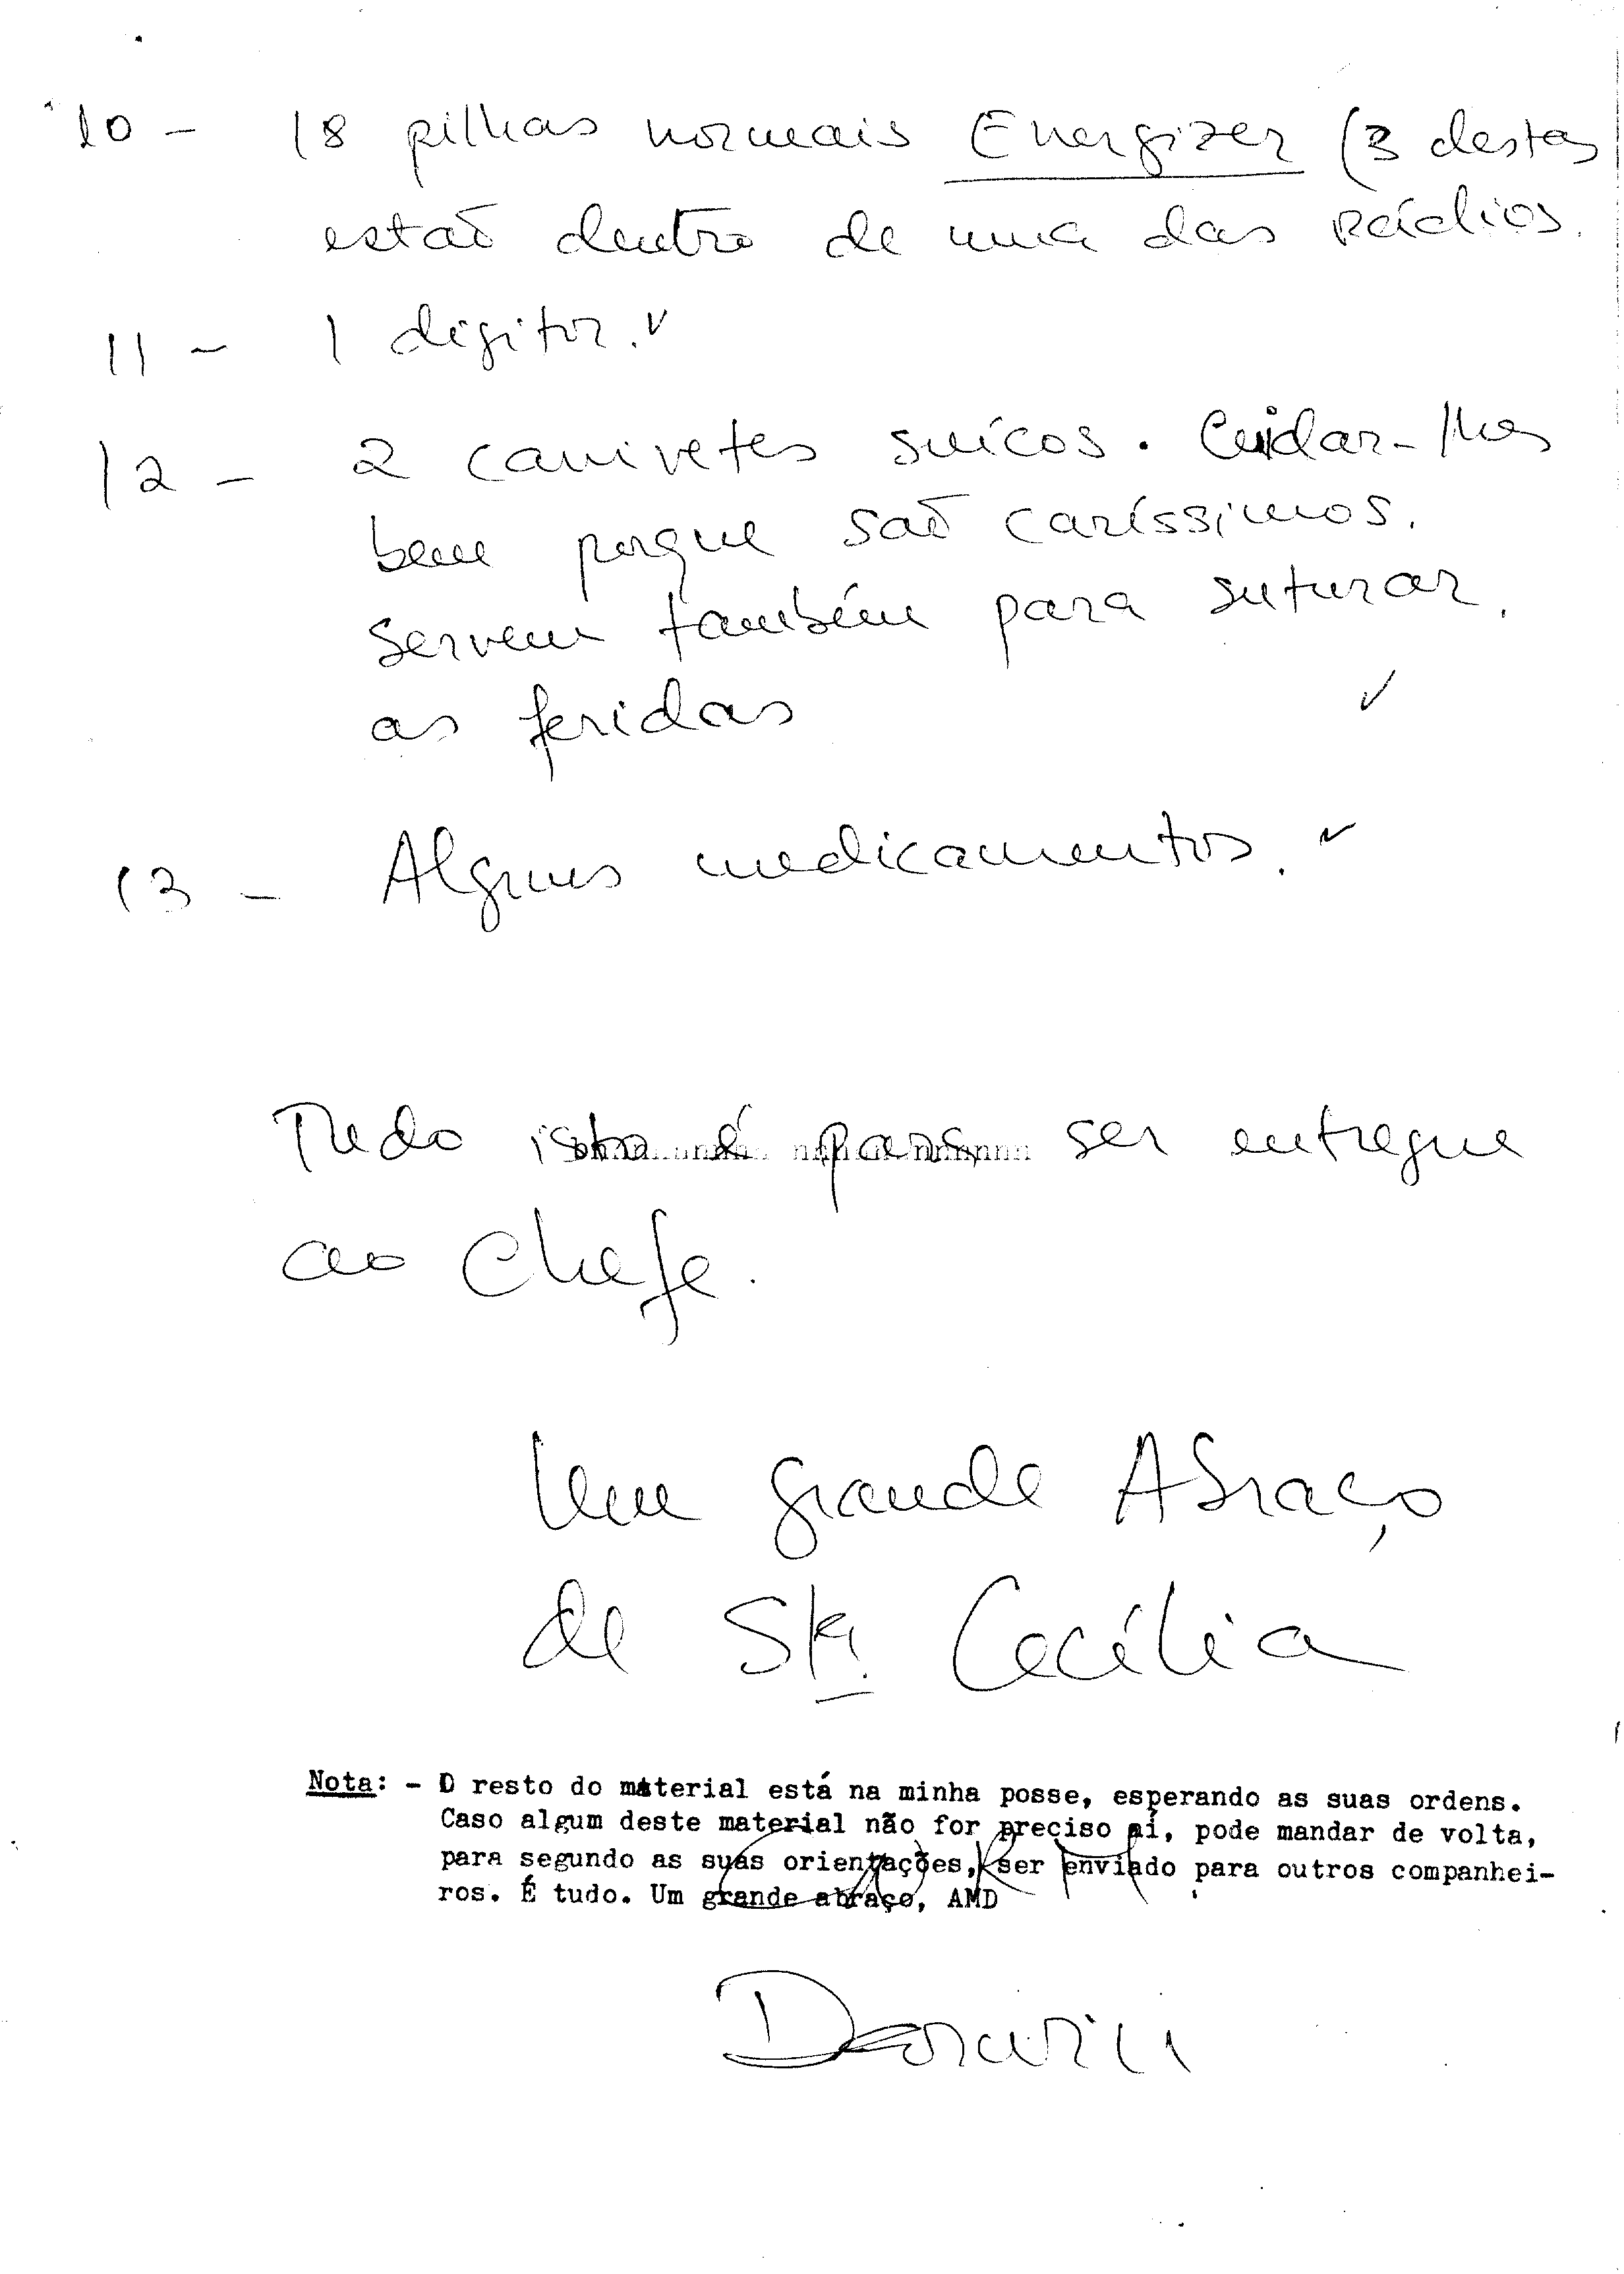 10 - 18 pilhas normais Energizer (3 destas
estaõ dentro de uma das rádios.
11 - 1 digitor. ✓
12 - 2 canivetes suícos. Cuidar-lhes
bem porque saõ caríssimos.
Servem também para suturar
as feridas ✓
13 - Alguns medicamentos. ✓
Tudo isto é para ser entregue
ao Chefe.
Um grande Abraço
de Sta. Cecília
Nota: - O resto do material está na minha posse, esperando as suas ordens.
Caso algum deste material não for preciso aí, pode mandar de volta,
para segundo as suas orientações, ser enviado para outros companhei-
ros. É tudo. Um grande abraço, AMD